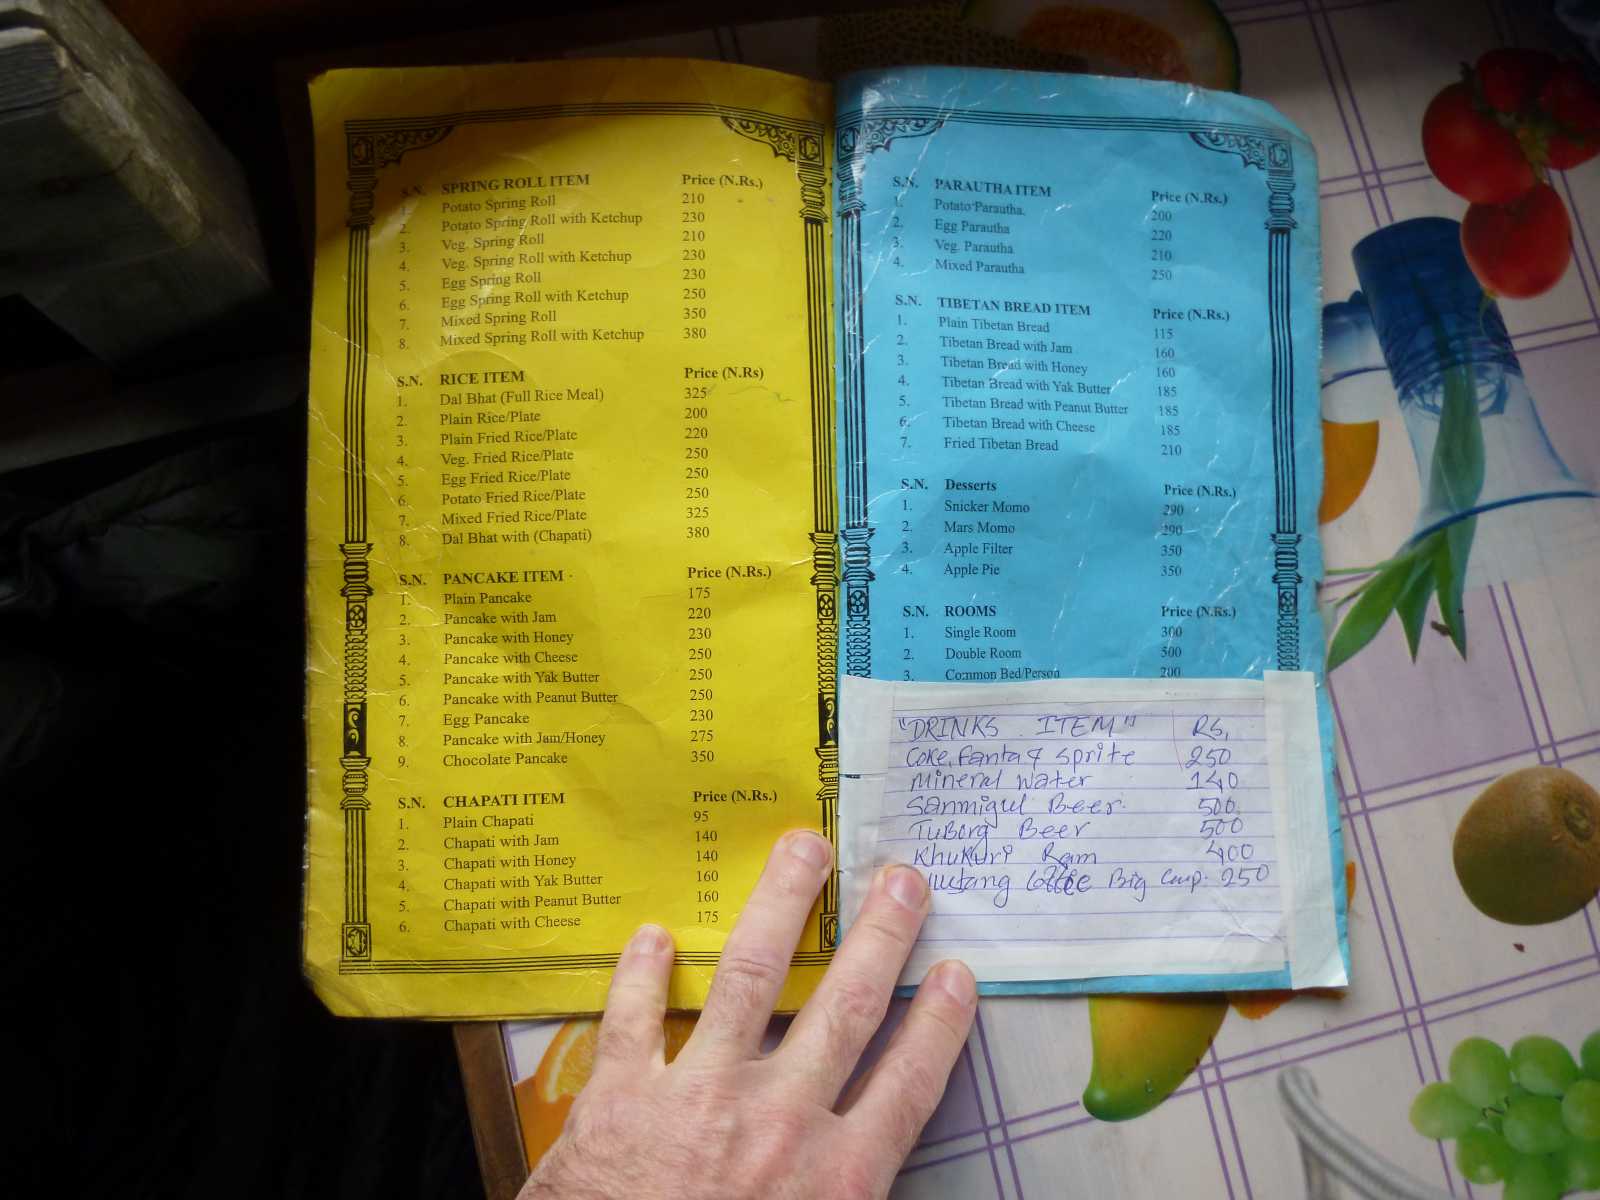 S.N. SPRING ROLL ITEM Price (N.Rs.)
1. Potato Spring Roll 210
2. Potato Spring Roll with Ketchup 230
3. Veg. Spring Roll 210
4. Veg. Spring Roll with Ketchup 230
5. Egg Spring Roll 230
6. Egg Spring Roll with Ketchup 250
7. Mixed Spring Roll 350
8. Mixed Spring Roll with Ketchup 380
S.N. RICE ITEM Price (N.Rs)
1. Dal Bhat (Full Rice Meal) 325
2. Plain Rice/Plate 200
3. Plain Fried Rice/Plate 220
4. Veg. Fried Rice/Plate 250
5. Egg Fried Rice/Plate 250
6. Potato Fried Rice/Plate 250
7. Mixed Fried Rice/Plate 325
8. Dal Bhat with (Chapati) 380
S.N. PANCAKE ITEM Price (N.Rs.)
1. Plain Pancake 175
2. Pancake with Jam 220
3. Pancake with Honey 230
4. Pancake with Cheese 250
5. Pancake with Yak Butter 250
6. Pancake with Peanut Butter 250
7. Egg Pancake 230
8. Pancake with Jam/Honey 275
9. Chocolate Pancake 350
S.N. CHAPATI ITEM Price (N.Rs.)
1. Plain Chapati 95
2. Chapati with Jam 140
3. Chapati with Honey 140
4. Chapati with Yak Butter 160
5. Chapati with Peanut Butter 160
6. Chapati with Cheese 175
S.N. PARAUTHA ITEM Price (N.Rs.)
1. Potato Parautha. 200
2. Egg Parautha 220
3. Veg. Parautha 210
4. Mixed Parautha 250
S.N. TIBETAN BREAD ITEM Price (N.Rs.)
1. Plain Tibetan Bread 115
2. Tibetan Bread with Jam 160
3. Tibetan Bread with Honey 160
4. Tibetan Bread with Yak Butter 185
5. Tibetan Bread with Peanut Butter 185
6. Tibetan Bread with Cheese 185
7. Fried Tibetan Bread 210
S.N. Desserts Price (N.Rs.)
1. Snicker Momo 290
2. Mars Momo 290
3. Apple Filter 350
4. Apple Pie 350
S.N. ROOMS Price (N.Rs.)
1. Single Room 300
2. Double Room 500
3. Common Bed/Person 200
"DRINKS ITEM" RS,
Coke, Fanta & Sprite 250
Mineral Water 140
Sanmigul Beer. 500
TuBorg Beer 500
Khukuri Ram 400
Coffee Big Cup. 250